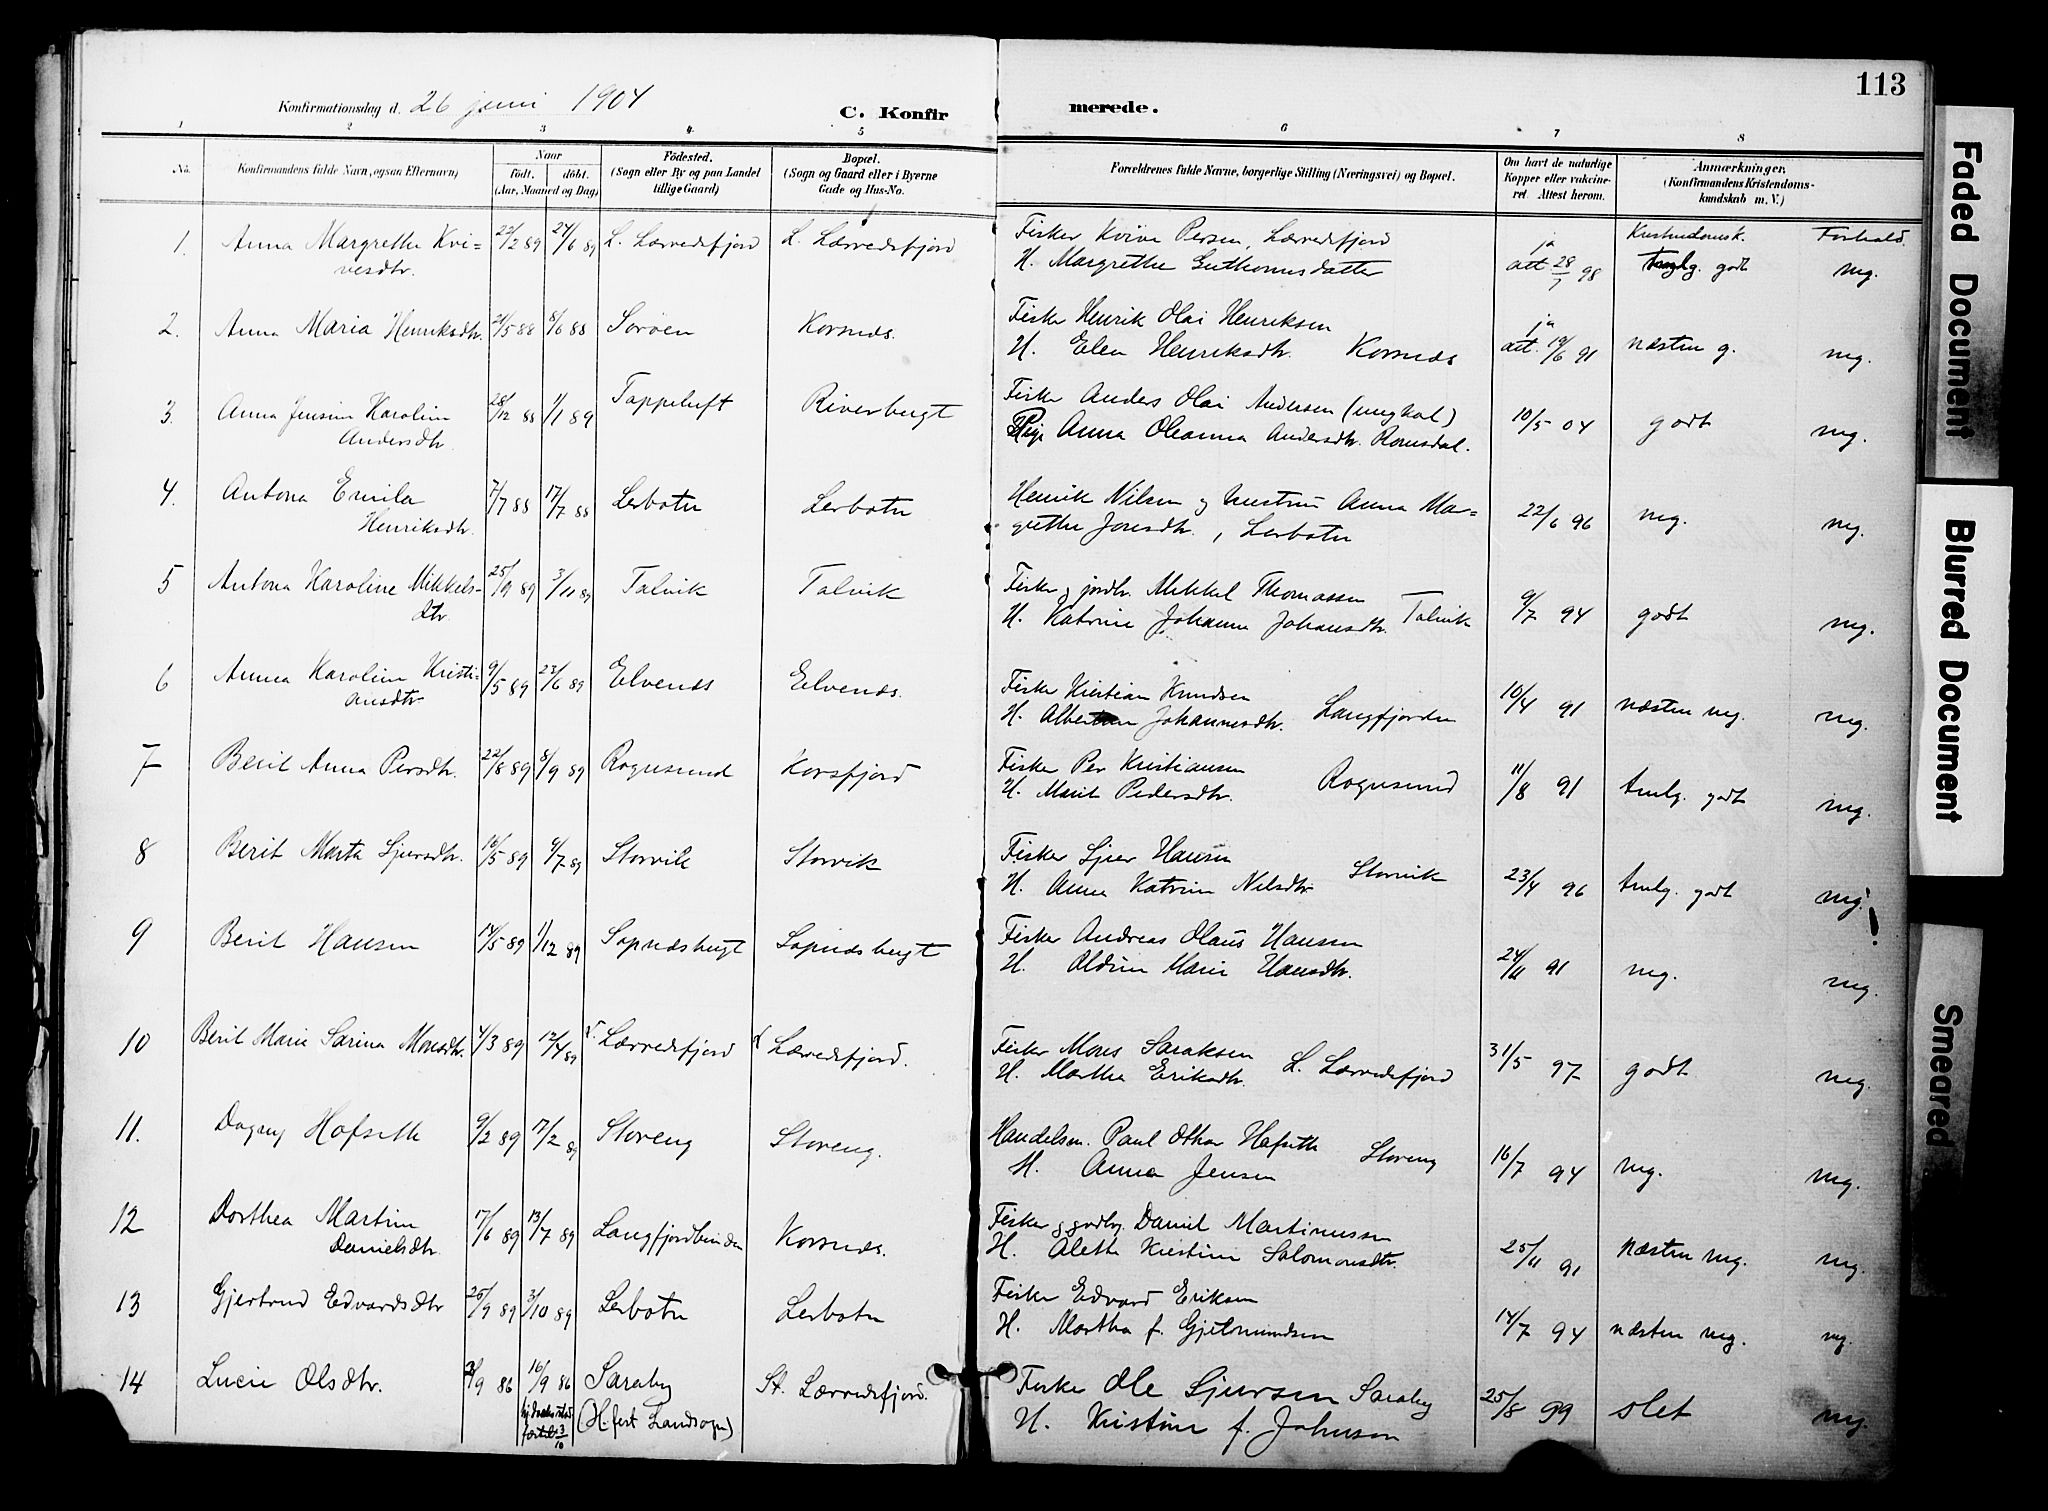 113
Konfirmationsdag d. 26 juni 1904
C. Konfirmerede.
1 2 3 4 5 6 7 8
No.
Konfirmandens fulde Navn, ogsaa Efternavn)
Naar
födt. döbt.
(Aar, Maaned og Dag)
Födested.
(Sogn eller By og paa Landet
tillige Gaard)
Bopæl.
(Sogn og Gaard eller i Byerne
Gade og Hus-No.
Forældrenes fulde Navne, borgerlige Stilling (Næringsvei) og Bopæl.
Om havt de naturlige
Kopper eller vakcine-
ret. Attest herom.
Anmærkninger.
(Konfirmandens Kristendoms-
kundskab m. V.)
Kristendomsk. Forhold.
1. Anna Margrethe Kvi- 22/2 89 24/6 89 L. Lærredsfjord L. Lærredsfjord Fisker Kvive Persen, Lærredsfjord ja
vesdtr. H. Margrethe Guttormsdatter att 28/7 98 godt mg.
2. Anna Maria Henriksdtr. 21/5 88 8/6 88 Sørøen Korsnes. Fisker Henrik Olai Henriksen ja
H. Elen Henriksdtr. Korsnes att. 19/6 91 næsten g. mg.
3. Anna Jensine Karoline 28/12 88 1/1 89 Tappeluft Riverbugt Fisker Anders Olai Andersen (ungkal)
Andersdtr. Pige Anna Oleanna Andersdtr. Romsdal. 10/5 04 godt mg.
4. Antona Emila 7/7 88 17/7 88 Lerbotn Lerbotn Henrik Nilsen og hustru Anna Mar-
Henriksdtr. grethe Jonsdtr., Lerbotn 22/6 96 mg. mg.
5 Antona Karoline Mikkels- 25/9 89 3/11 89 Talvik Talvik Fisker g jordbr. Mikkel Thomassen
dtr. H. Katrine Johanna Johansdtr. Talvik 9/7 94 godt mg.
6 Anna Karoline Kristi- 9/5 89 23/6 89 Elvenes Elvenes. Fisker Kristian Knudsen
ansdtr. H. Johannesdtr. Langfjorden 10/4 91 næsten mg. mg.
7 Berit Anna Persdtr. 22/8 89 8/9 89 Rognsund Korsfjord Fisker Per Kristiansen
H. Marit Pedersdtr. Rognsund 11/8 91 tmlg. godt mg.
8 Berit Marta Sjursdtr. 16/5 89 /7 89 Storvik Storvik Fisker Sjur Hansen
H. Anna Katrine Nilsdtr. Storvik 23/4 96 tmlg. godt mg.
9 Berit Hansen 14/5 89 1/12 89 Sopnesbugt Sopnesbugt Fisker Andreas Olaus Hansen
H. Oldine Marie Hansdtr. 24/11 91 mg. mg.
10 Berit Marie Sarina Monsdtr. 4/3 89 12/4 89 Lærredsfjord Lærredsfjord. Fisker Mons Saraksen
H. Martha Eriksdtr. L. Lærredsfjord 31/5 97 godt mg.
11. Dagny Hofseth 9/2 89 17/2 89 Storeng Storeng. Handelsm. Paul Othar Hofseth
H. Anna Jensen Storeng 16/7 94 mg. mg.
12 Dorthea Martine 17/6 89 13/7 89 Langfjordbunden Korsnes. Fisker g jordbr. Daniel Martinussen
Danielsdtr. H. Aletta Kristine Salomonsdtr. 25/11 91 næsten mg. mg.
13 Gjertrud Edvardsdtr 25/9 89 3/10 89 Lerbotn Lerbotn Fisker Edvard Eriksen
H. Martha f. Gjermundsen 14/7 94 næsten mg. mg.
14 Lucie Olsdtr. /9 86 16/9 86 Saraby St. Lærredsfjord. Fisker Ole Sjursen Saraby
hj. 3/10 (H.fest Landsogn) H. Kristine f. Johnsen 25/8 99 slet mg.
Faded Document
Blurred Document
Smeared